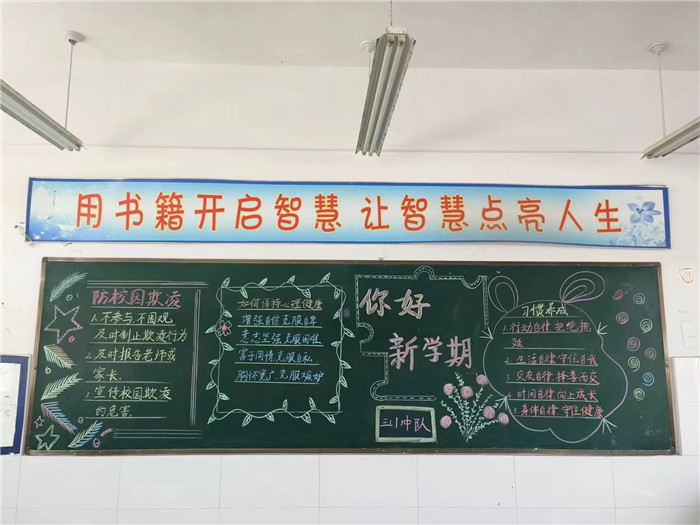 用书籍开启智慧 让智慧点亮人生
防校园欺凌
1.不参与,不围观,
及时制止欺凌行为
2.及时报告老师或
家长.
3.宣传校园欺凌
的危害.
如何保持心理健康
增强自信克服自卑
意志坚强克服困住
富于同情克服自私
胸怀宽广克服嫉妒
你好
新学期
三1中队
习惯养成
1.行动自律拒绝拖
延
2.生活自律守住自我
3.交友自律择善而交
4.时间自律向上成长
5.身体自律守住健康